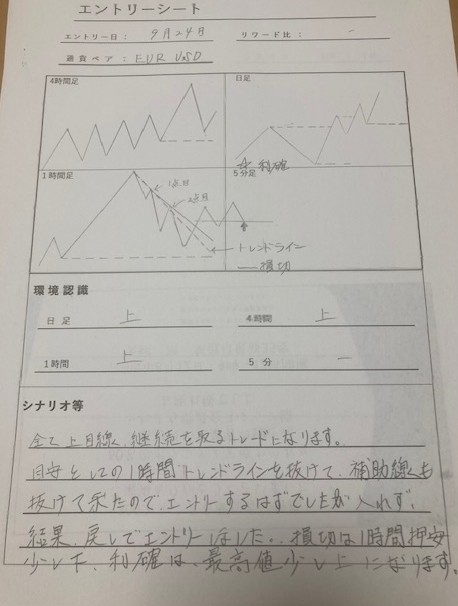 エントリーシート
エントリー日： 9月24日 リワード比： −
通貨ペア： EUR USD
4時間足 日足
利確
1時間足 5分足
1点目
2点目
トレンドライン
損切
環境認識
日足 上 4時間 上
1時間 上 5分 −
シナリオ等
全て上目線く、継続を取るトレードになります。
目安としての1時間トレンドラインを抜けて、補助線くも
抜けて来たので、エントリーするはずでしたが入れず、
結果、戻しでエントリーしました。損切は1時間押安
少し下、利確は、最高値少し上になります。